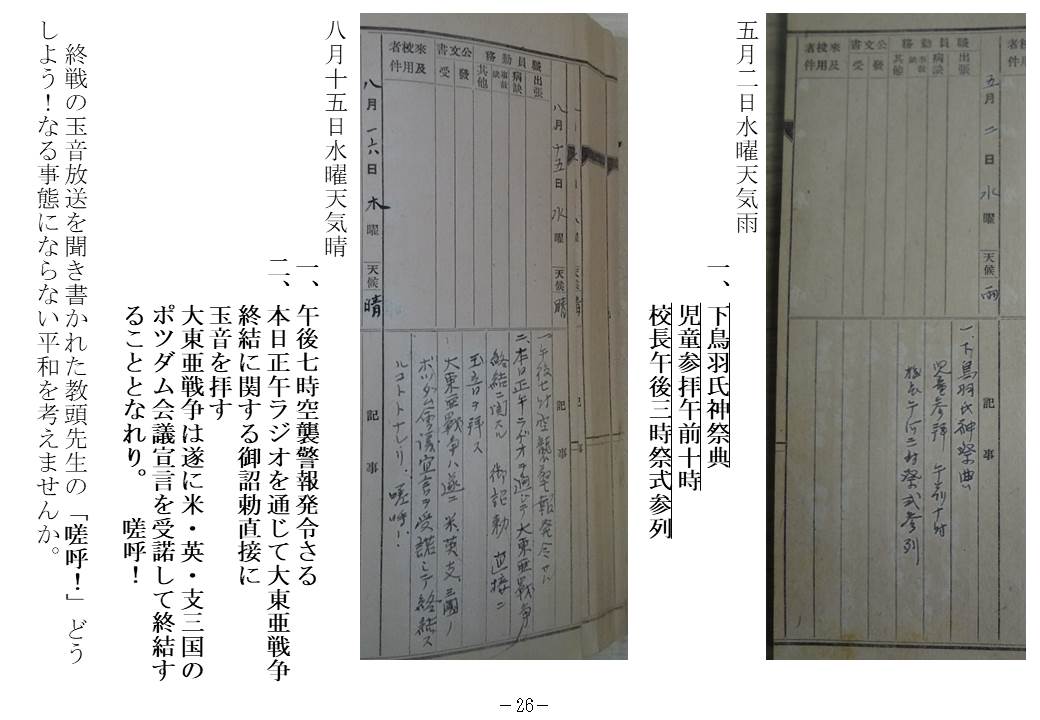 五月 二日 水曜 天候 雨
職員勤務
出張
病缺
事故缺
其他
公文書
發
受
來校者及用件
記事
一、下鳥羽氏神祭典
児童参拝 午前十時
校長午后三時祭式参列
五月二日水曜天気雨
一、下鳥羽氏神祭典
児童参拝午前十時
校長午後三時祭式参列
八月十五日 水曜 天候 晴
職員勤務
出張
病缺
事故缺
其他
公文書
發
受
來校者及用件
八月一六日 木曜 天候 晴
記事
一、午后七時空襲警報発令サル
二、本日正午ラヂオヲ通ジテ大東亜戦争
終結ニ関スル 御詔勅 直接ニ
玉音ヲ拝ス
大東亜戦争ハ遂ニ米英支三國ノ
ポツダム會議宣言ヲ受諾シテ終結ス
ルコトトナレリ. 嗟呼!.
八月十五日水曜天気晴
一、午後七時空襲警報発令さる
二、本日正午ラジオを通じて大東亜戦争
終結に関する御詔勅直接に
玉音を拝す
大東亜戦争は遂に米・英・支三国の
ポツダム会議宣言を受諾して終結す
ることとなれり。 嗟呼!
終戦の玉音放送を聞き書かれた教頭先生の「嗟呼!」どう
しよう!なる事態にならない平和を考えませんか。
－26－